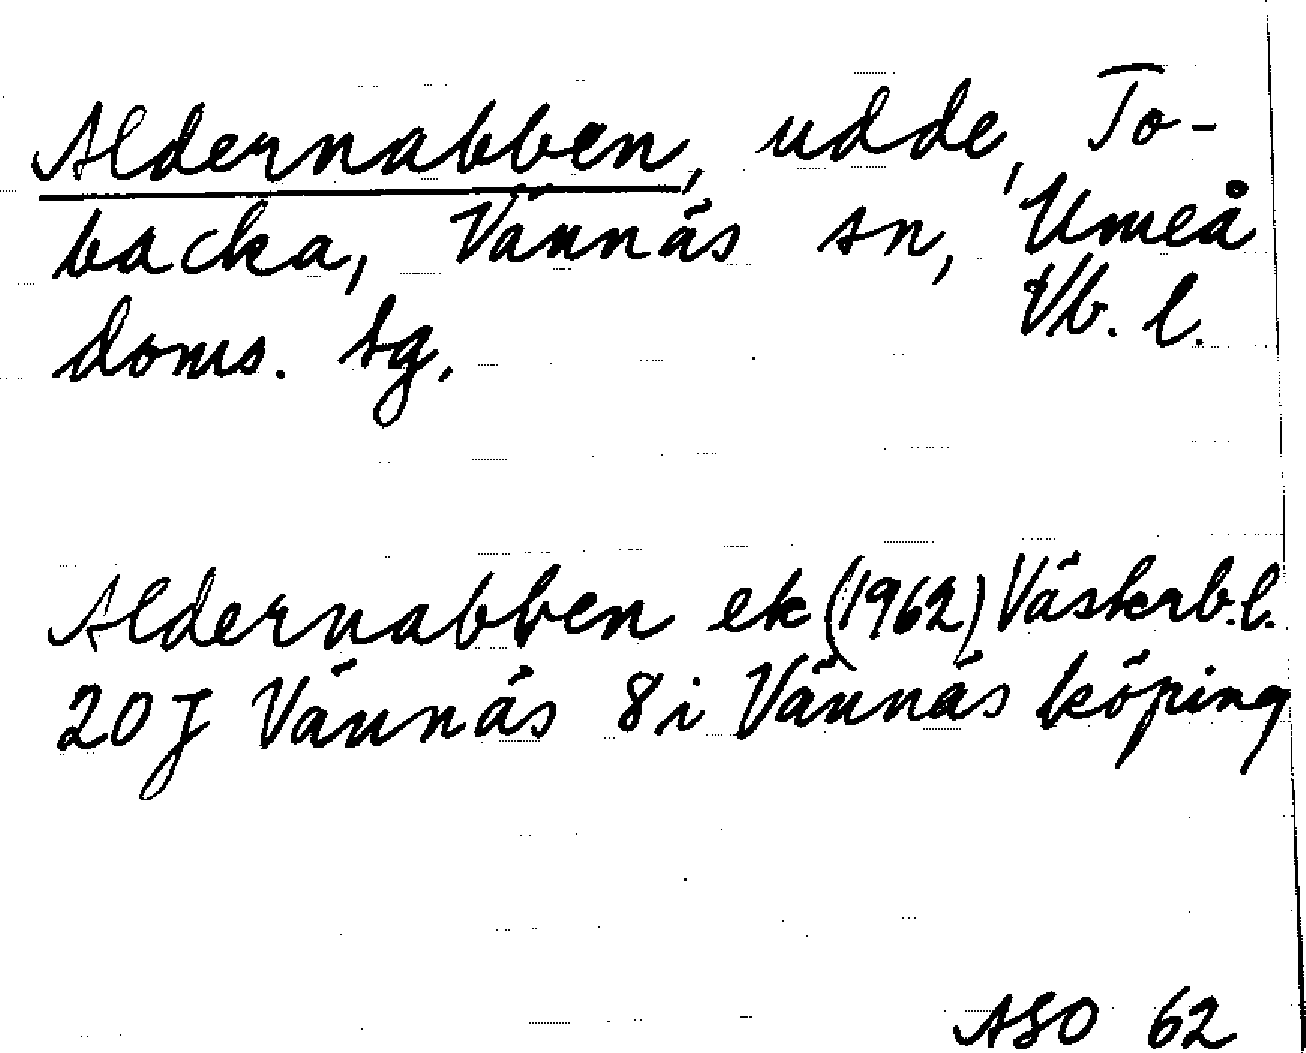 Aldernabben, udde, To-
backa, Vännäs sn, Umeå
doms. sg. Vb. l.
Aldernabben ek (1962) Västerb.l.
20J Vännäs 8i Vännäs köping
ASO 62